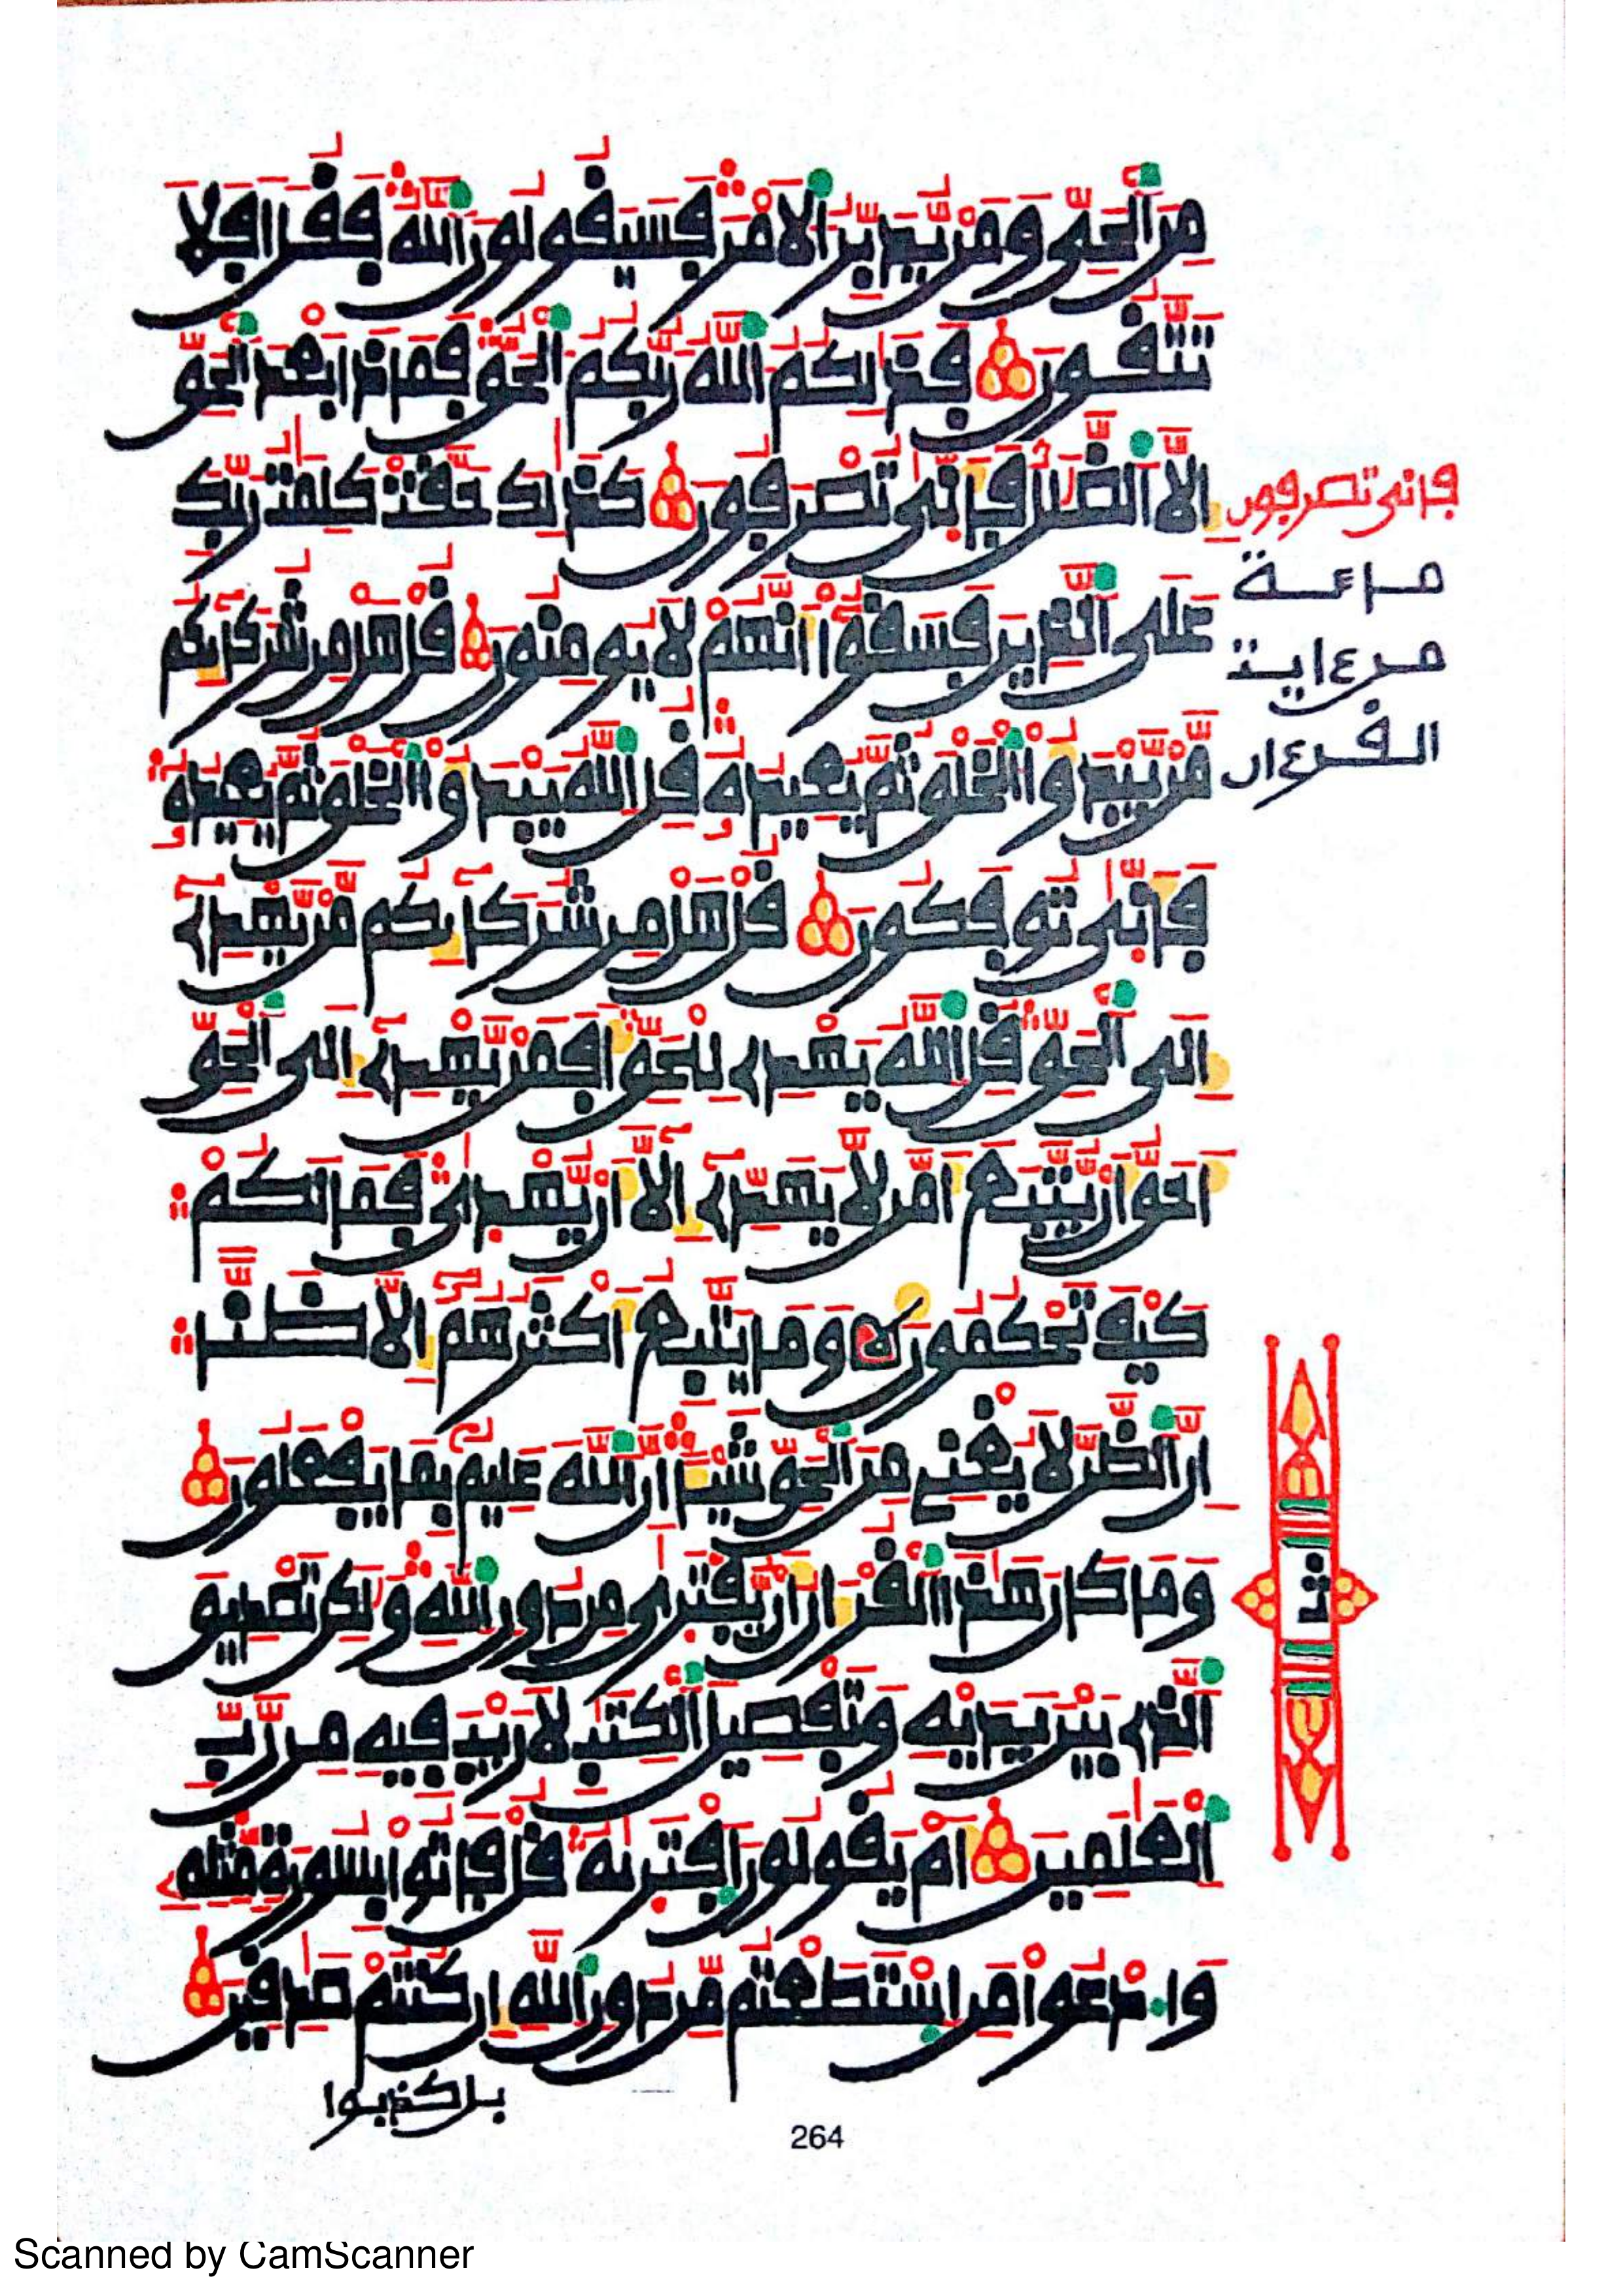 مِنَ ٱلْحَيِّ وَمَنْ يُّدَبِّرُ ٱلَامْرَ فَسَيَقُولُونَ ٱللَّهُ فَقُلَ اَفَلَا
تَتَّقُونَ فَذَٰلِكُمُ ٱللَّهُ رَبُّكُمُ ٱلْحَقُّ فَمَاذَا بَعْدَ ٱلْحَقِّ
إِلَّا ٱلضَّلَٰلُ فَأَنّٜىٰ تُصْرَفُونَ كَذَٰلِكَ حَقَّتْ كَلِمَٰتُ رَبِّكَ
عَلَى ٱلذِينَ فَسَقُوٓا أَنَّهُمْ لَا يُومِنُونَ قُلْ هَلْ مِن شُرَكَآئِكُم
مَّنْ يَّبْدَؤُا ٱلْخَلْقَ ثُمَّ يُعِيدُهُۥ قُلِ ٱللَّهُ يَبْدَؤُا ٱلْخَلْقَ ثُمَّ يُعِيدُهُۥ
فَأَنّٜىٰ تُوفَكُونَ قُلْ هَلْ مِن شُرَكَآئِكُم مَّنْ يَّهْدِےٓ
إِلَى ٱلْحَقِّ قُلِ ٱللَّهُ يَهْدِے لِلْحَقِّ أَفَمَنْ يَّهْدِےٓ إِلَى ٱلْحَقِّ
أَحَقُّ أَنْ يُّتَّبَعَ أَمَّن لَّا يَهَدِّےٓ إِلَّآ أَنْ يُّهْدٜىٰ فَمَا لَكُمْ
كَيْفَ تَحْكُمُونَ وَمَا يَتَّبِعُ أَكْثَرُهُمُۥٓ إِلَّا ظَنّاً
اِنَّ ٱلظَّنَّ لَا يُغْنِے مِنَ ٱلْحَقِّ شَيْـٔاً اِنَّ ٱللَّهَ عَلِيمٌۢ بِمَا يَفْعَلُونَ
وَمَا كَانَ هَٰذَا ٱلْقُرْءَانُ أَنْ يُّفْتَرٜىٰ مِن دُونِ ٱللَّهِ وَلَٰكِن تَصْدِيقَ
ٱلذِے بَيْنَ يَدَيْهِ وَتَفْصِيلَ ٱلْكِتَٰبِ لَا رَيْبَ فِيهِ مِن رَّبِّ
ٱلْعَٰلَمِينَ أَمْ يَقُولُونَ ٱفْتَرٜىٰهُ قُلْ فَاتُوا بِسُورَةٍ مِّثْلِهِۦ
وَٱدْعُوا مَنِ ٱسْتَطَعْتُم مِّن دُونِ ٱللَّهِ إِن كُنتُمْ صَٰدِقِينَ
بل كذبوا
فانى تصرفون
مراعة
من ءاية
القرءان
264
Scanned by CamScanner